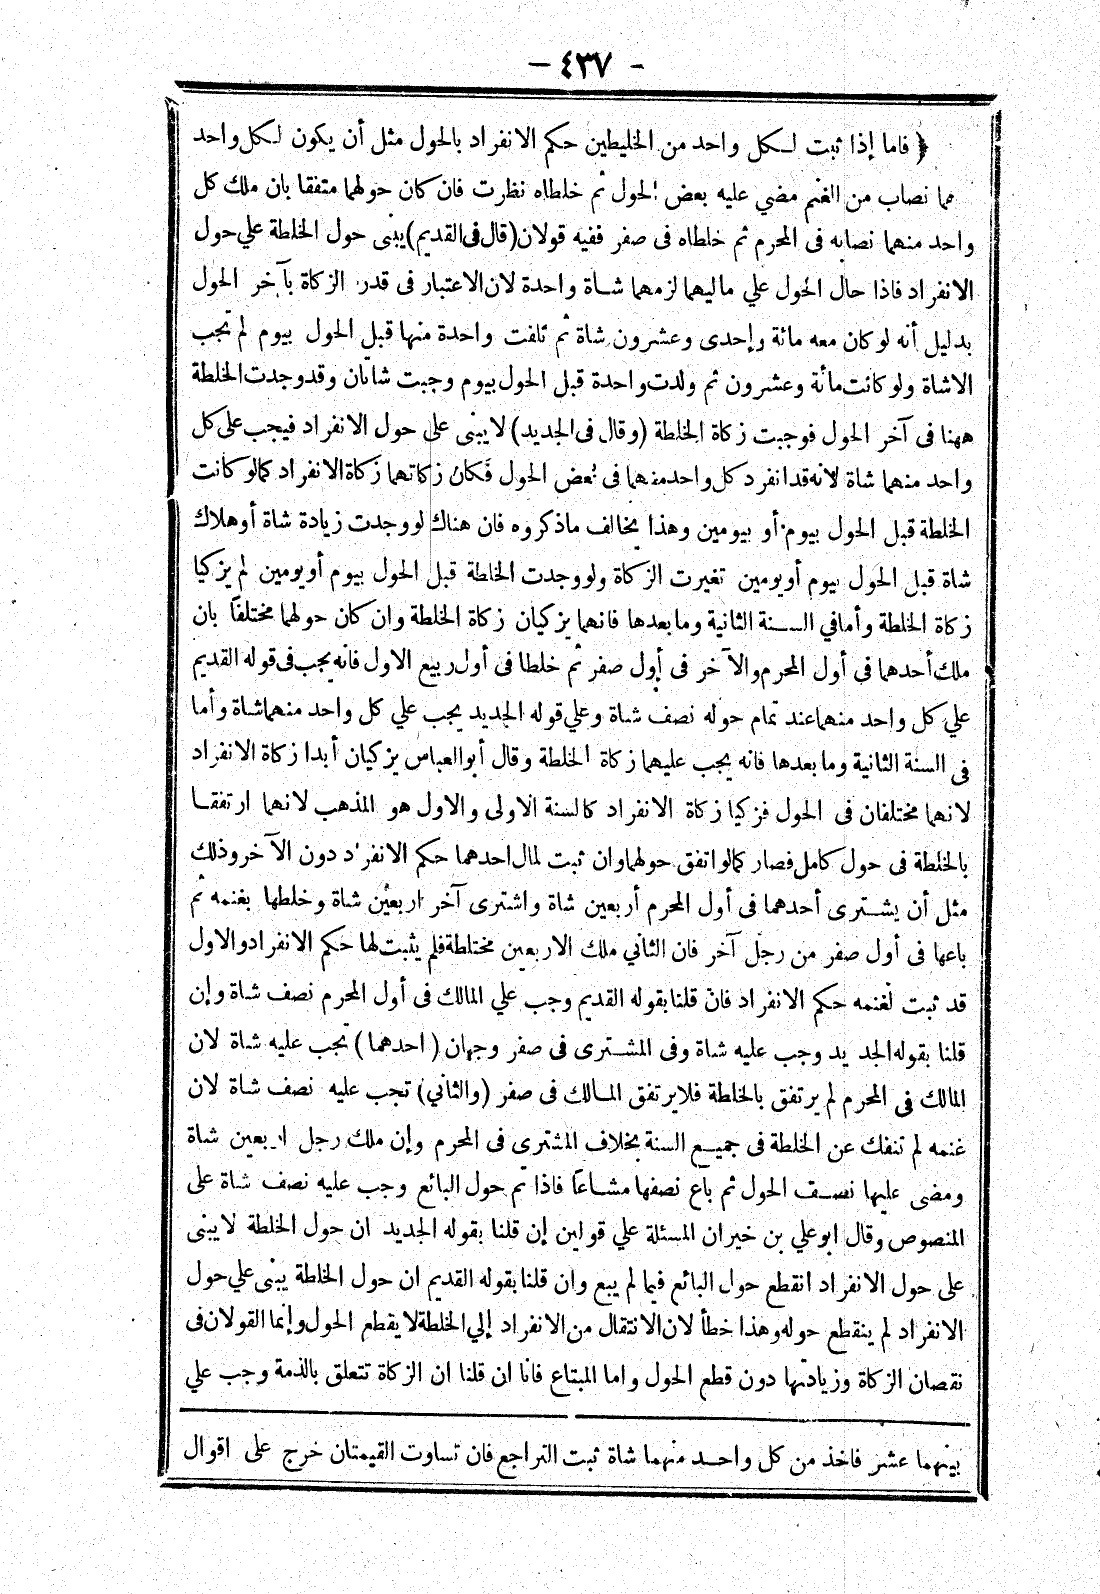 - ٤٣٧ -
﴿ فاما إذا ثبت لكل واحد من الخليطين حكم الانفراد بالحول مثل أن يكون لكل واحد
مما نصاب من الغنم مضي عليه بعض الحول ثم خلطاه نظرت فان كان حولهما متفقا بان ملك كل
واحد منهما نصابه فى المحرم ثم خلطاه فى صفر ففيه قولان (قال فى القديم) يبنى حول الخلطة علي حول
الانفراد فاذا حال الحول علي ماليهما لزمهما شاة واحدة لان الاعتبار فى قدر الزكاة بآخر الحول
بدليل أنه لو كان معه مائة وإحدى وعشرون شاة ثم تلفت واحدة منها قبل الحول بيوم لم تجب
الاشاة ولو كانت مائة وعشرون ثم ولدت واحدة قبل الحول بيوم وجبت شاتان وقد وجدت الخلطة
ههنا فى آخر الحول فوجبت زكاة الخلطة (وقال فى الجديد) لا يبنى على حول الانفراد فيجب على كل
واحد منهما شاة لانه قد انفرد كل واحد منهما فى بعض الحول فكان زكاتهما زكاة الانفراد كما لو كانت
الخلطة قبل الحول بيوم أو بيومين وهذا يخالف ما ذكروه فان هناك لو وجدت زيادة شاة أو هلاك
شاة قبل الحول بيوم أو يومين تغيرت الزكاة ولو وجدت الخلطة قبل الحول بيوم أو يومين لم يزكيا
زكاة الخلطة وأما في السنة الثانية وما بعدها فانهما يزكيان زكاة الخلطة وان كان حولهما مختلفا بان
ملك أحدهما في أول المحرم والآخر فى أول صفر ثم خلطا فى أول ربيع الاول فانه يجب فى قوله القديم
علي كل واحد منهما عند تمام حوله نصف شاة وعلي قوله الجديد يجب علي كل واحد منهما شاة وأما
فى السنة الثانية وما بعدها فانه يجب عليهما زكاة الخلطة وقال أبو العباس يزكيان أبدا زكاة الانفراد
لانهما مختلفان فى الحول فزكيا زكاة الانفراد كالسنة الاولى والاول هو المذهب لانهما ارتفقا
بالخلطة فى حول كامل فصار كما لو اتفق حولهما وان ثبت لمال احدهما حكم الانفراد دون الآخر وذلك
مثل أن يشترى أحدهما فى أول المحرم أربعين شاة واشترى آخر اربعين شاة وخلطها بغنمه ثم
باعها فى أول صفر من رجل آخر فان الثاني ملك الاربعين مختلطة فلم يثبت لها حكم الانفراد والاول
قد ثبت لغنمه حكم الانفراد فان قلنا بقوله القديم وجب علي المالك فى أول المحرم نصف شاة وإن
قلنا بقوله الجديد وجب عليه شاة وفى المشترى فى صفر وجهان (احدهما) تجب عليه شاة لان
المالك فى المحرم لم يرتفق بالخلطة فلا يرتفق المالك فى صفر (والثاني) تجب عليه نصف شاة لان
غنمه لم تنفك عن الخلطة فى جميع السنة بخلاف المشترى فى المحرم وإن ملك رجل اربعين شاة
ومضى عليها نصف الحول ثم باع نصفها مشاعا فاذا تم حول البائع وجب عليه نصف شاة على
المنصوص وقال ابو علي بن خيران المسئلة علي قولين إن قلنا بقوله الجديد ان حول الخلطة لا يبنى
على حول الانفراد انقطع حول البائع فيما لم يبع وان قلنا بقوله القديم ان حول الخلطة يبنى علي حول
الانفراد لم ينقطع حوله وهذا خطأ لان الانتقال من الانفراد إلي الخلطة لا يقطع الحول وإنما القولان فى
نقصان الزكاة وزيادتها دون قطع الحول واما المبتاع فانا ان قلنا ان الزكاة تتعلق بالذمة وجب علي
بينهما عشر فاخذ من كل واحد منهما شاة ثبت التراجع فان تساوت القيمتان خرج على اقوال